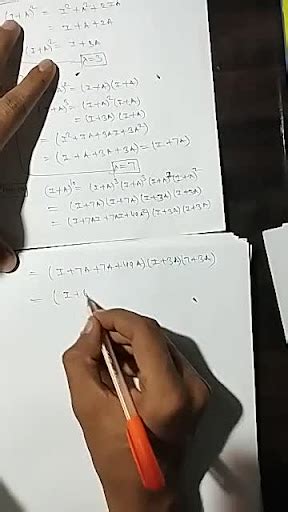 (I+A)² = I²+A²+2IA
= I+A+2A
(I+A)² = I+3A
λ=3
= (I+A)(I+A)
= (I+A)²(I+A)
= (I+3A)(I+A)
= (I²+IA+3AI+3A²)
= (I+A+3A+3A) = (I+7A)
λ=7
= (I+7A)(I+7A)(I+3A)(I+3A)
= (I+7AI+7AI+49A²)(I+3A)(I+3A)
= (I+7A+7A+49A)(I+3A)(I+3A)
= (I+